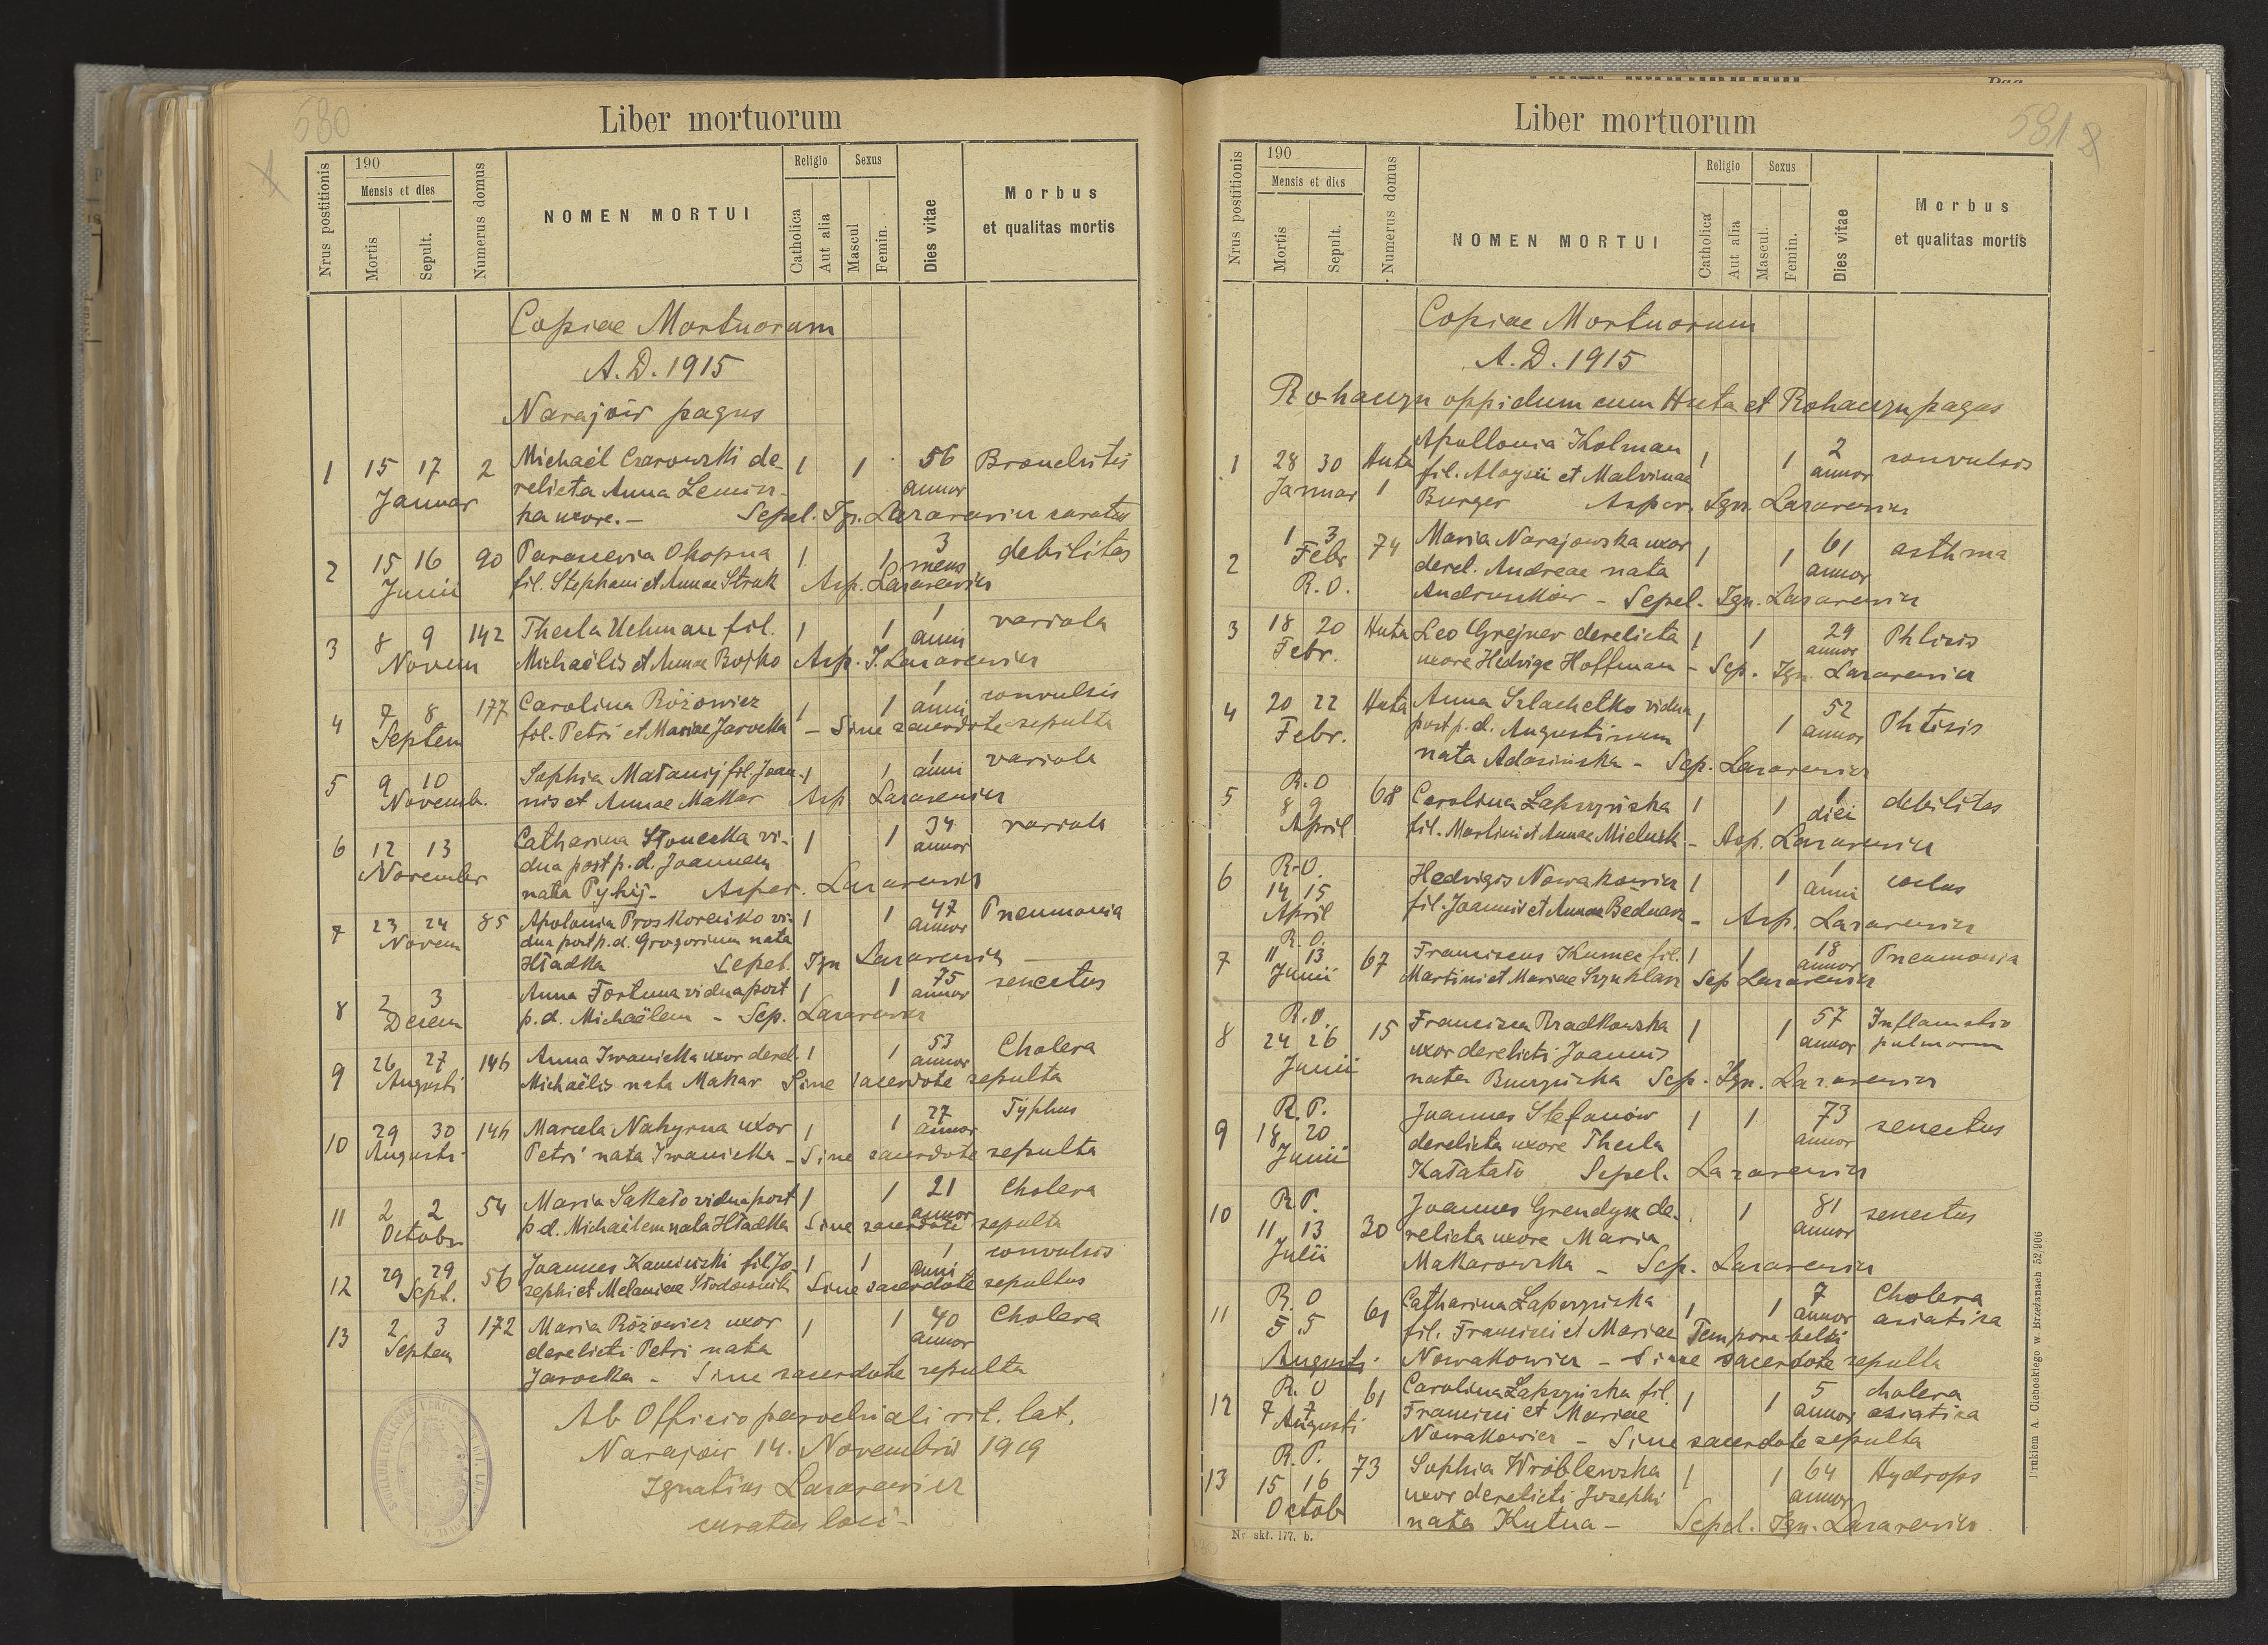 580
Liber mortuorum
Nrus postitionis
190
Mensis et dies
Mortis
Sepult.
Numerus domus
NOMEN MORTUI
Religio
Catholica
Aut alia
Sexus
Mascul
Femin.
Dies vitae
Morbus
et qualitas mortis
Copiae Mortuorum
A. D. 1915
Narajów pagus
1 15 17 2 Michaël Czarowski de- 1 1 56 Bronchitis
Januar relicta Anna Lewin- annor
ka uxore. — Sepel. Ign. Lazarewicz curatus
2 15 16 90 Parascevia Okopna 1 1 3 mens debilitas
Junii fil. Stephani et Annae Struk Asp. Lazarewicz
3 8 9 142 Thecla Uchman fil. 1 1 1 anni variola
Novem Michaëlis et Annae Bojko Asp. I. Lazarewicz
4 7 8 177 Carolina Różowicz 1 1 1 anni convulsis
Septem fil. Petri et Mariae Jarocka — Sine sacerdote sepulta
5 9 10 Sophia Matanij fil. Joan- 1 1 1 anni variola
Novemb. nis et Annae Makar Asp Lazarewicz
6 12 13 Catharina Słonecka vi- 1 1 34 variola
Novembr dua post p. d. Joannem annor
nata Pyhij - Asper. Lazarewicz
7 23 24 85 Apolonia Proskorenko vi- 1 1 47 Pneumonia
Novem dua post p. d. Grogorium nata annor
Hładka Sepel. Ign Lazarewicz
8 2 3 Anna Fortuna vidua post 1 1 75 senectus
Decem p. d. Michaëlem - Sep. Lazarewicz annor
9 26 27 146 Anna Iwanicka uxor derel. 1 1 53 Cholera
Augusti Michaëlis nata Makar Sine sacerdote sepulta annor
10 29 30 146 Marcela Nahyrna uxor 1 1 27 Typhus
Augusti Petri nata Iwanicka - Sine sacerdote sepulta annor
11 2 2 54 Maria Sakato vidua post 1 1 21 Cholera
Octobr p. d. Michaëlem nata Hładka Sine sacerdote sepulta annor
12 29 29 56 Joannes Kaminski fil. Jo- 1 1 1 anni convulsis
Sept. sephi et Melaniae Sine sacerdote sepultus
13 2 3 172 Maria Różowicz uxor 1 1 40 Cholera
Septem derelicti Petri nata annor
Jarocka - Sine sacerdote sepulta
Ab Officio parochiali rit. lat.
Narajów 14. Novembris 1919
Ignatius Lazarewicz
curatus loci -
581
Liber mortuorum
Nrus postitionis
190
Mensis et dies
Mortis
Sepult.
Numerus domus
NOMEN MORTUI
Religio
Catholica
Aut alia
Sexus
Mascul.
Femin.
Dies vitae
Morbus
et qualitas mortis
Copiae Mortuorum
A. D. 1915
Rohaczyn oppidum cum Huta et Rohaczyn pagus
1 28 30 Huta Apollonia Kolman 1 1 2 convulsis
Januar 1 fil. Aloysii et Malvinae annor
Burger Asper. Ign. Lazarewicz
2 1 3 74 Maria Narajowska uxor 1 1 61 asthma
Febr derel. Andreae nata annor
R. O. Andruszków - Sepel. Ign. Lazarewicz
3 18 20 Huta Leo Grejner derelicta 1 1 29 Phtisis
Febr. uxore Hedvige Hoffman - Sep. Ign. Lazarewicz annor
4 20 22 Huta Anna Szlachetko vidua 1 1 52 Phtisis
Febr. post p. d. Augustinum annor
nata Adasinska - Sep. Lazarewicz
R. O
5 8 9 68 Carolina Łapszyńska 1 1 1 diei debilitas
April fil. Martini et Annae Mielnik - Asp. Lazarewicz
R. O.
6 14 15 Hedvigis Nowakowicz 1 1 1 anni
April fil. Joannis et Annae Bednarz - Asp. Lazarewicz
R. O.
7 11 13 67 Franciscus Kumec fil. 1 1 18 Pneumonia
Junii Martini et Mariae Szynklarz Sep Lazarewicz annor
R. O.
8 24 26 15 Francisca Rzadkowska 1 1 57 Inflamatio
Junii uxor derelicti Joannis annor pulmorum
nata Buczyńska Sep. Ign. Lazarewicz
R. P.
9 18 20 Joannes Stefanów 1 1 73 senectus
Junii derelicta uxore Thecla annor
Kałatało Sepel. Lazarewicz
R. P.
10 11 13 30 Joannes Grendysz de- 1 81 senectus
Julii relicta uxore Maria annor
Makarowska - Sep. Lazarewicz
R. O
11 5 5 61 Catharina Łapszyńska 1 1 7 Cholera
Augusti fil. Francisci et Mariae Tempore belli annor asiatica
Nowakowicz - Sine sacerdote sepulta
R. O
12 7 7 61 Carolina Łapszyńska fil. 1 1 5 cholera
Augusti Francisci et Mariae annor asiatica
Nowakowicz - Sine sacerdote sepulta
R. P.
13 15 16 73 Sophia Wróblewska 1 1 64 Hydrops
Octob uxor derelicti Josephi annor
nata Kutna - Sepel. Ign. Lazarewicz
Nr. skł. 177. b.
Drukiem A. Cichockiego w Brzeżanach 52/906